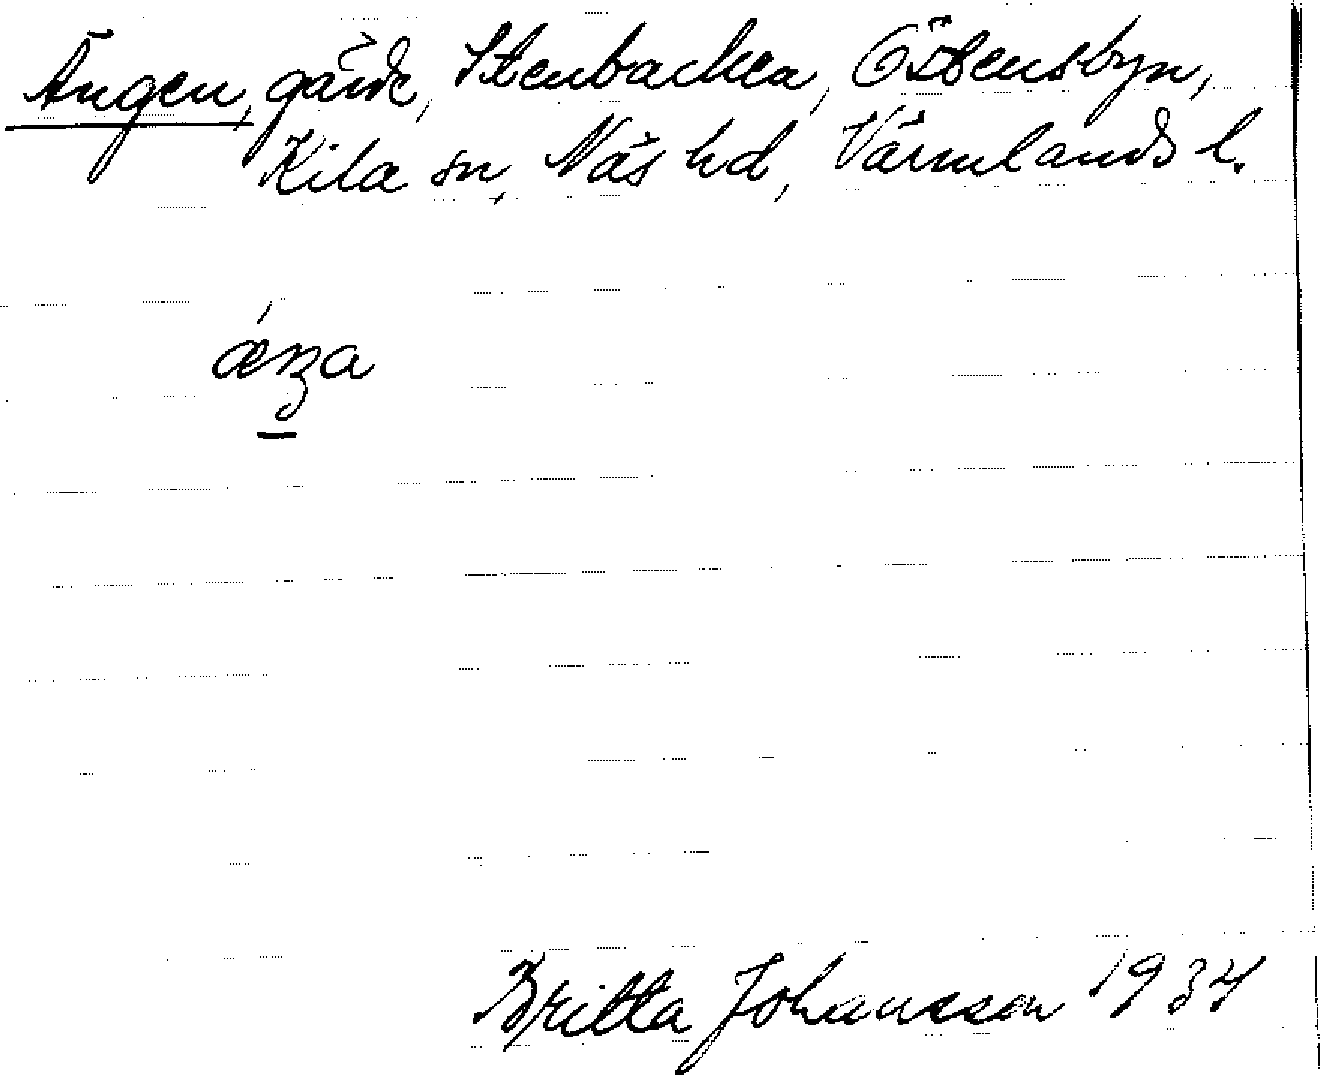 Ängen, gärde, Stenbacken, Östensbyn,
Kila sn, Näs hd, Värmlands l.
Britta Johansson 1934